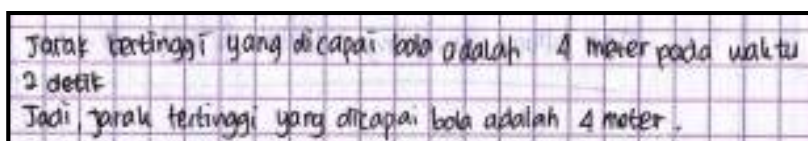 Jarak tertinggi yang dicapai bola adalah 4 meter pada waktu
2 detik
Jadi, jarak tertinggi yang dicapai bola adalah 4 meter.